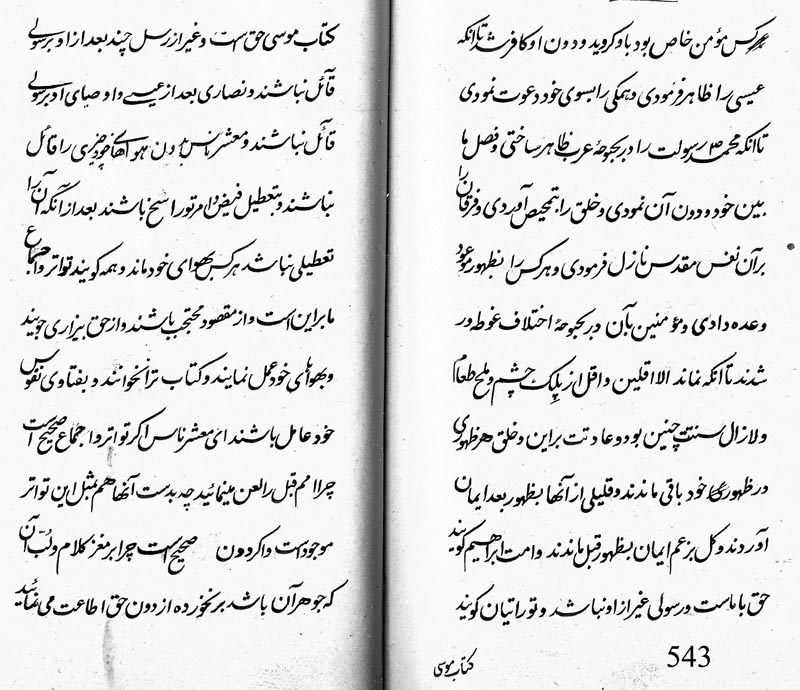 هرکس مؤمن خاص بود باو کروید و دون او کافر شد تا انکه
عیسی را ظاهر فرمودی و همکی را بسوی خود دعوت نمودی
تا انکه محمد ص رسولت را در بحبوحهٔ عرب ظاهر ساختی و فصل ما
بین خود و دون آن نمودی و خلق را بتمحیص آوردی و فرقان را
برآن نفس مقدس نازل فرمودی و هر کس را بظهور موعود
وعده دادی و مؤمنین بآن در بحبوحهٔ اختلاف غوطه ور
شدند تا انکه نماند الا اقلین و اقل از پلک چشم و ملح طعام
ولازال سنتت چنین بود و عادتت براین و خلق هر ظهوری
در ظهور خود باقی ماندند و قلیلی از آنها بظهور بعد ایمان
آوردند و کل بزعم ایمان بظهور قبل ماندند و امت ابراهیم کویند
حق با ماست و رسولی غیر از او نباشد و توراتیان کویند
543
کتاب موسی
کتاب موسی حق است و غیر از رسل چند بعد از او برسولی
قآئل نباشند و نصاری بعد از عیسی و اوصیای او برسولی
قآئل نباشند و معشر ناس بدون هواهای خود چیزی را قآئل
نباشند و بتعطیل فیض و امر تو راسخ باشند بعد از انگه آن را
تعطیلی نباشد هر کس بهوای خود ماند و همه کویند تواتر و اجماع
ما براین است و از مقصود محتجب باشند و از حق بیزاری جویند
و بهواهای خود عمل نمایند و کتاب ترا نخوانند و بفتاوی نفوس
خود عامل باشند ای معشر ناس اکر تواتر و اجماع صحیح است
چرا امم قبل را لعن مینمائید چه بدست آنها هم بمثل این تواتر
موجود است و اکر دون صحیح است چرا بر مغز کلام و لب آن
که جوهر آن باشد برنخورده از دون حق اطاعت می نمائید